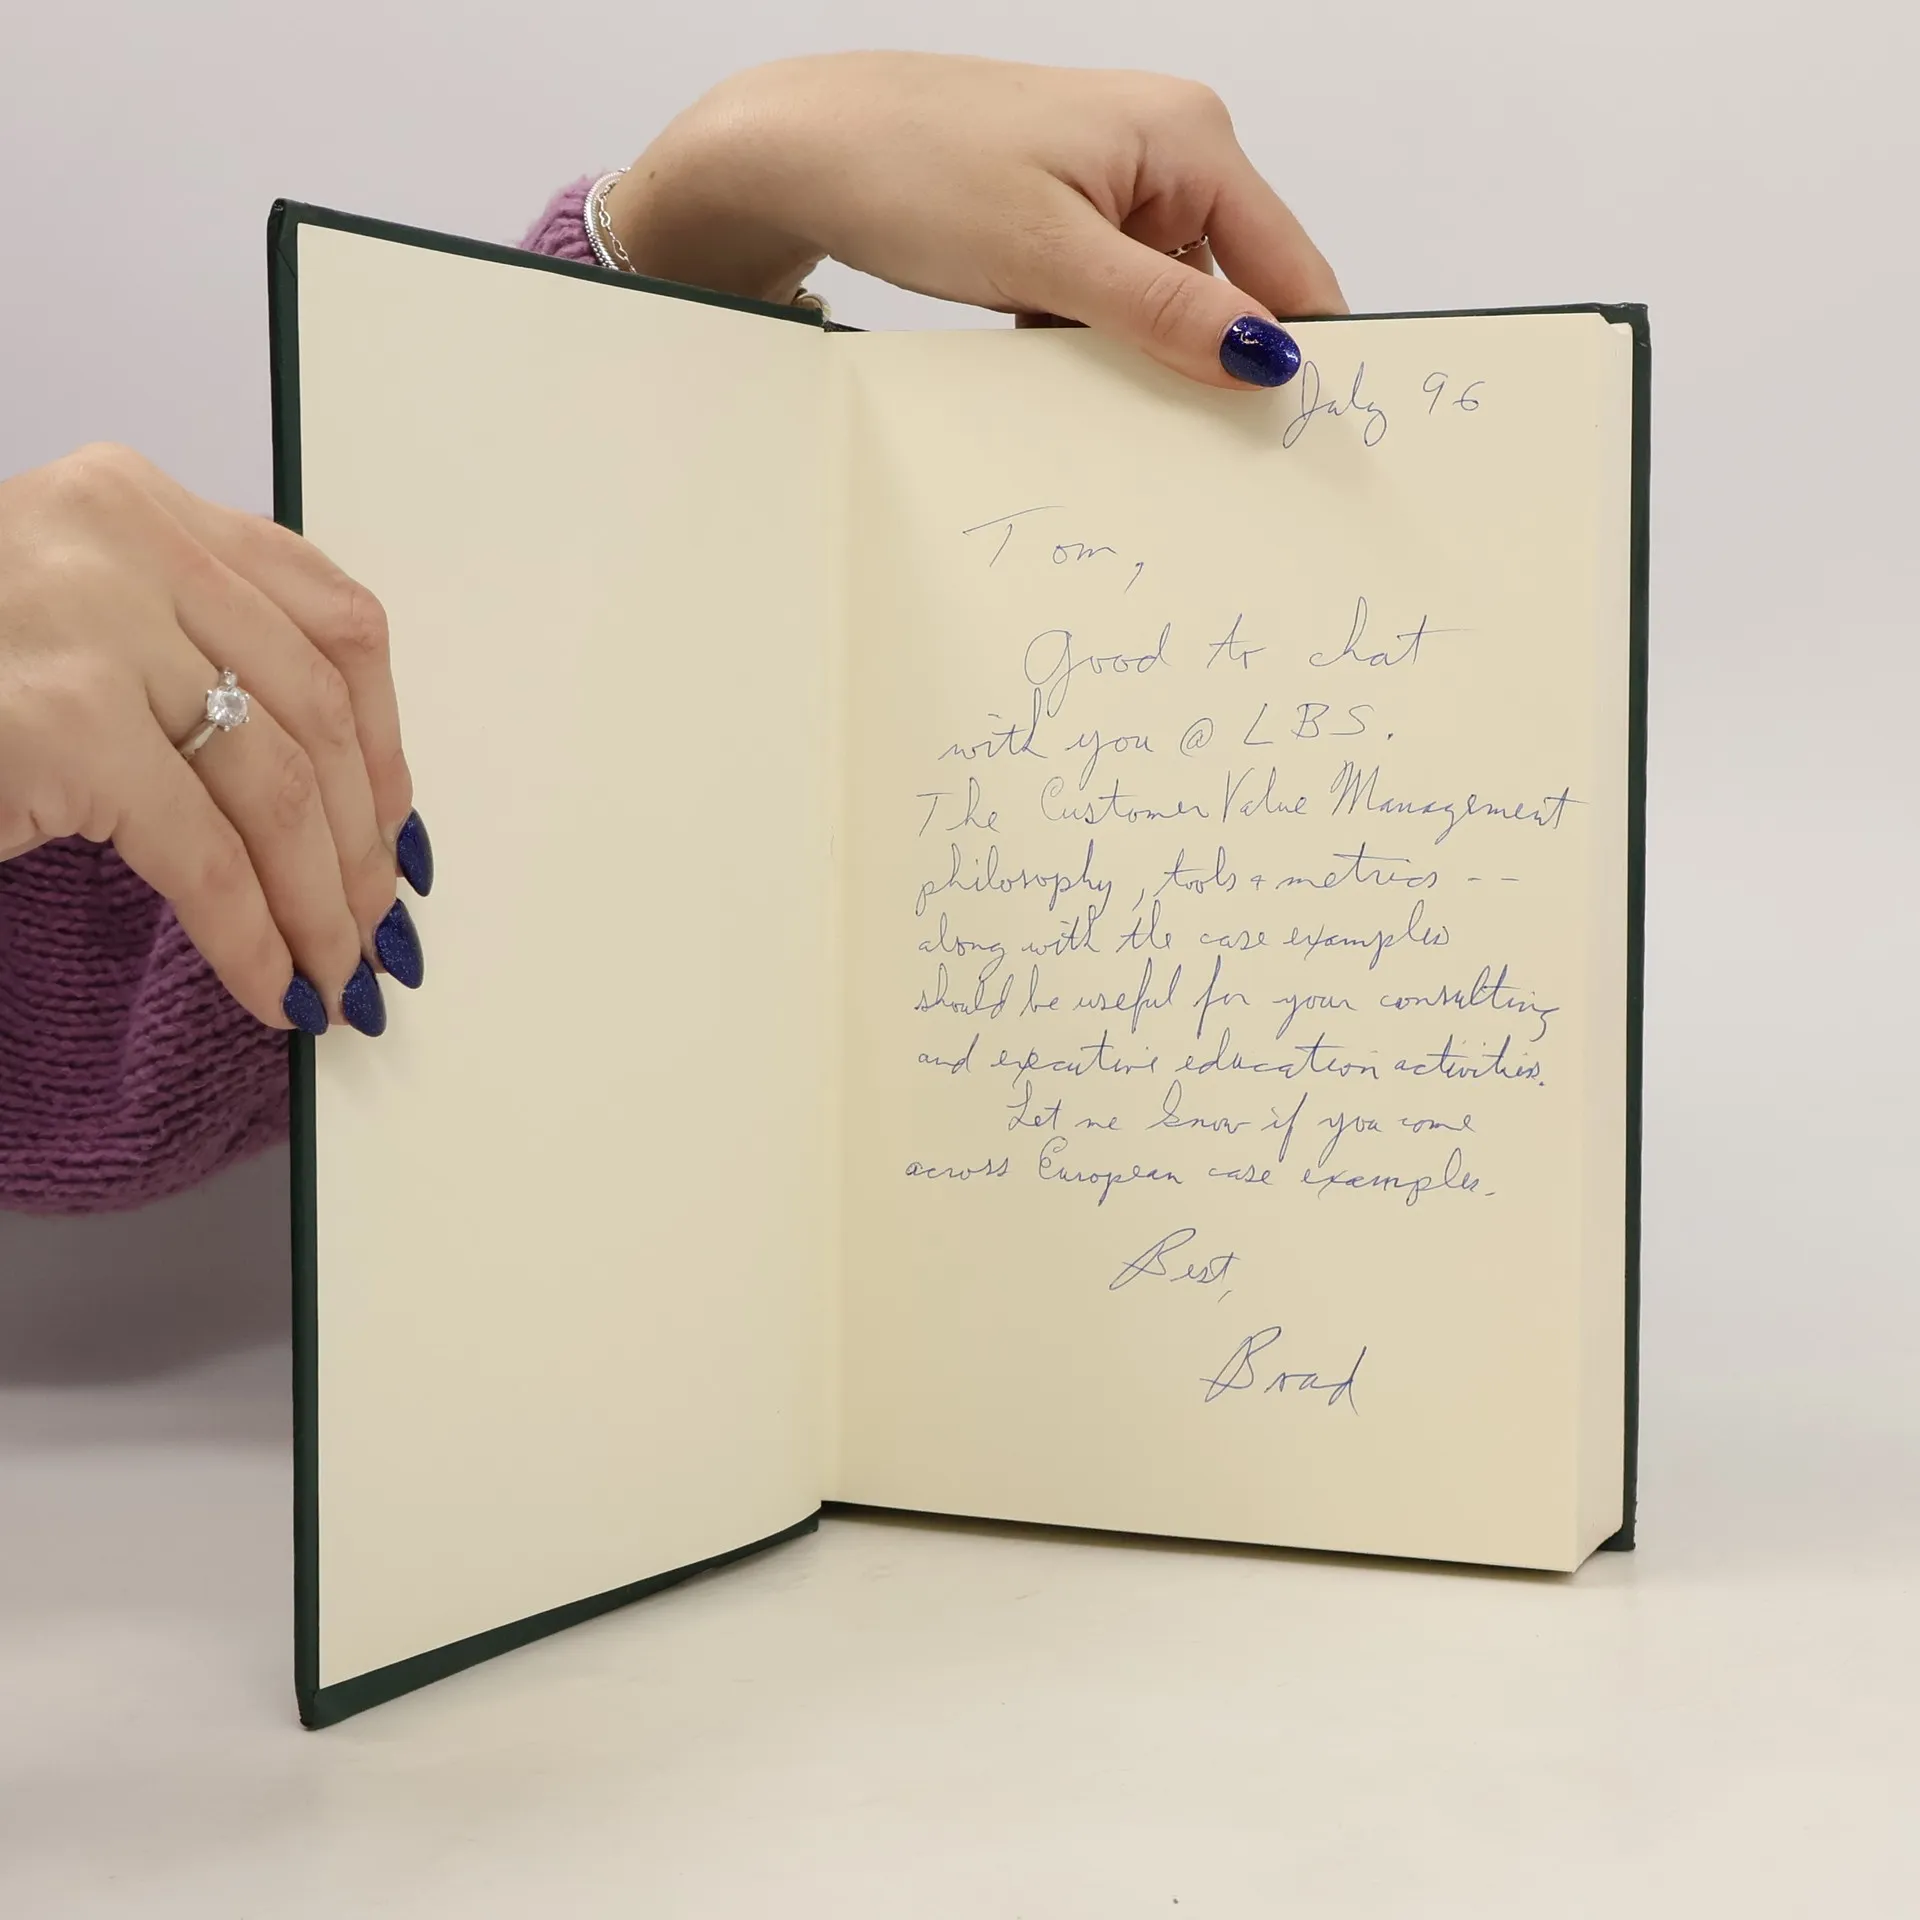 July 96
Tom,
Good to chat
with you @ LBS.
The Customer Value Management
philosophy, tools + metrics --
along with the case examples
should be useful for your consulting
and executive education activities.
Let me know if you come
across European case examples.
Best,
Brad